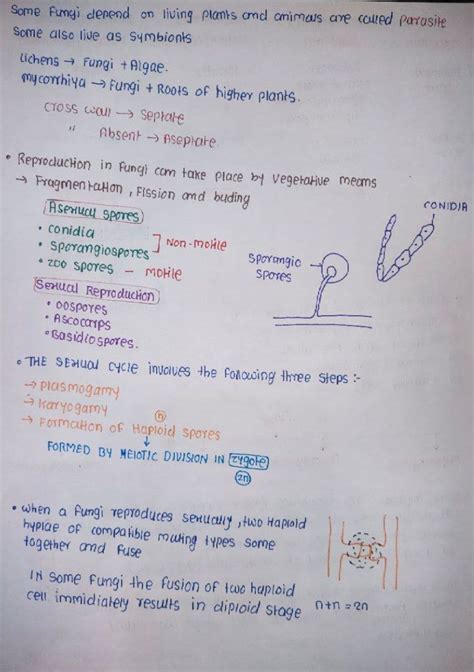 Some Fungi depend on living plants and animals are called parasite
Some also live as symbionts
Lichens → Fungi + Algae.
mycorrhiya → Fungi + Roots of higher plants.
Cross wall → Septate
" Absent → Aseptate.
• Reproduction in Fungi can take place by vegetative means
→ Fragmentation, Fission and buding
Asexual spores
• conidia
• sporangiospores
Non-motile
• zoo spores – motile
Sporangio
spores
CONIDIA
Sexual Reproduction
• oospores
• Ascocarps
• Basidiospores.
• THE sexual cycle involves the following three steps :-
→ Plasmogamy
→ Karyogamy
→ Formation of Haploid spores
n
FORMED BY MEIOTIC DIVISION IN zygote
2n
• when a fungi reproduces sexually, two Haploid
hyplae of compatible mating types some
together and fuse
IN some fungi the fusion of two haploid
cell immidiately results in diploid stage
n+n = 2n